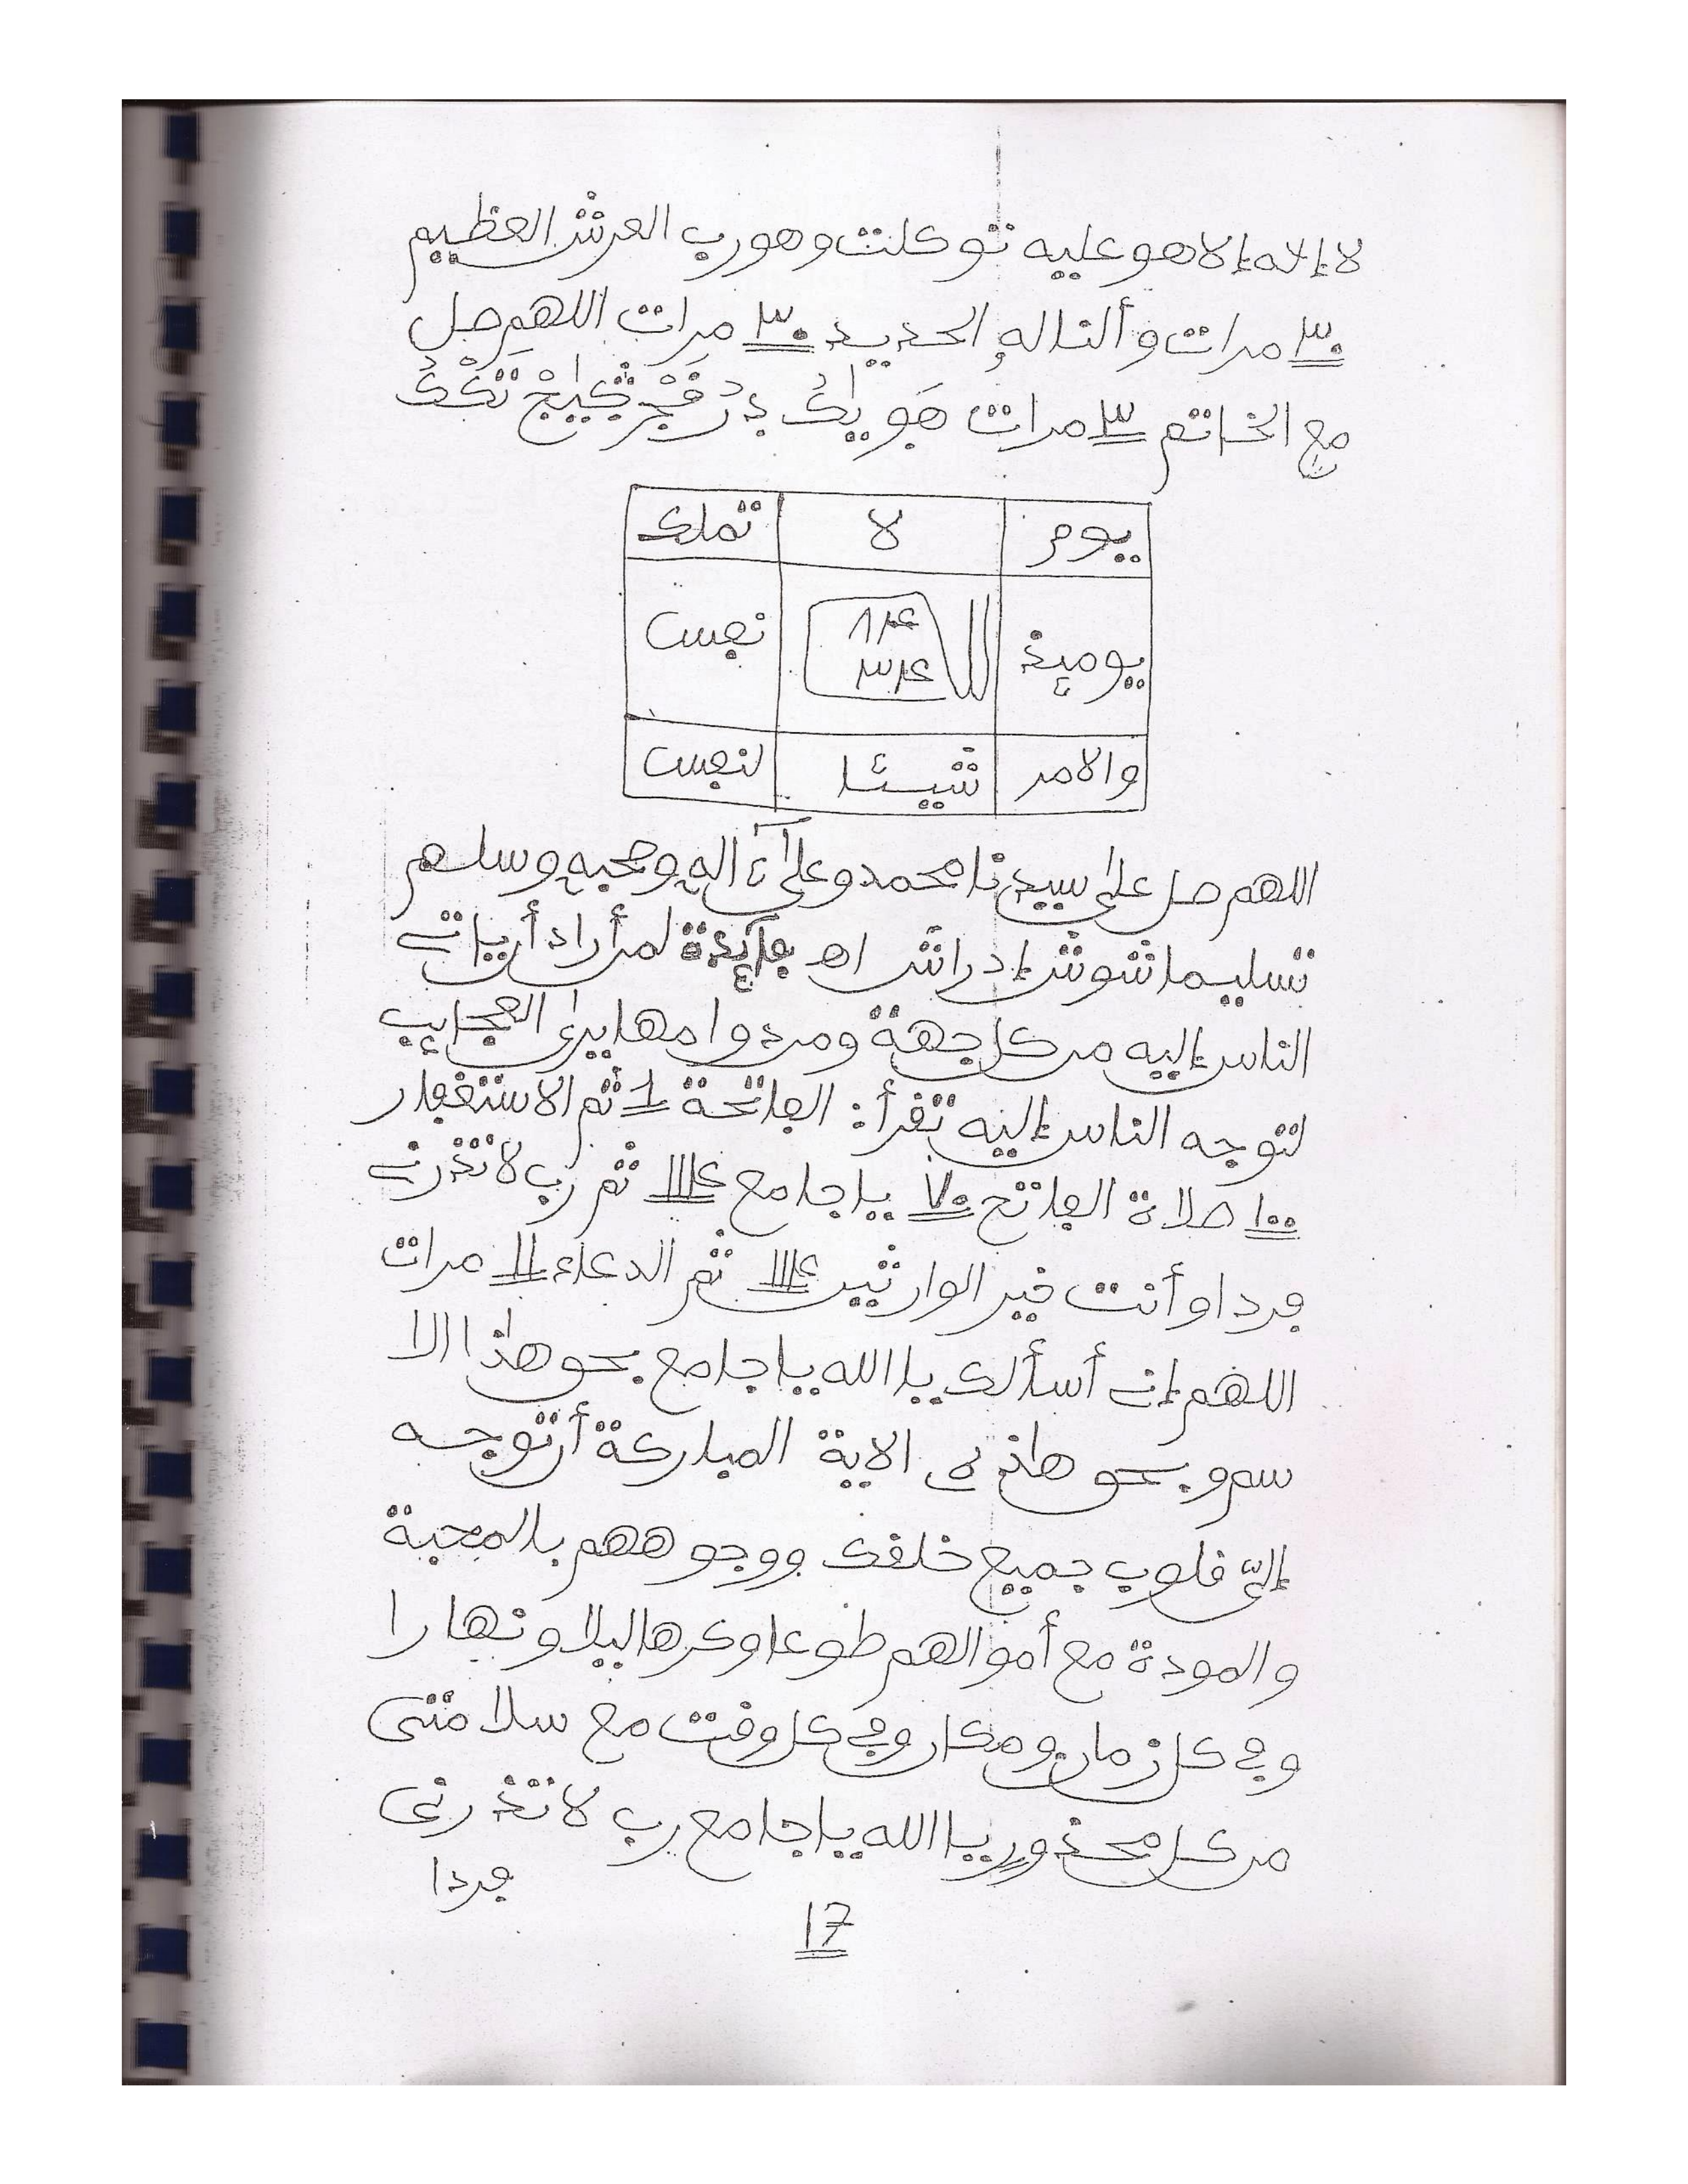 لا إلاه إلا هو عليه توكلت وهو رب العرش العظيم
٣٠ مرات وألنا له الحديد ٣٠ مرات اللهم صل
مع الخاتم ٣ مرات
يوم لا تملك
يومئذ نفس
والامر شيئا لنفس
اللهم صل على سيدنا محمد وعلى ءاله وصحبه وسلم
تسليما شوش إدراش اه فايدة لمن أراد أن ياتي
الناس إليه من كل جهة ومن دوامها يرى العجايب
لتوجه الناس إليه تقرأ: الفاتحة 1 ثم الاستغفار
١٠٠ صلاة الفاتح ٧٠ يا جامع ١١٤ ثم رب لا تذرني
فردا وأنت خير الوارثين ١١٤ ثم الدعاء ١١ مرات
اللهم إني أسألك يا الله يا جامع بحق هذا الا
سم وبحق هاذه الاية المباركة أن توجه
إلي قلوب جميع خلقك ووجوههم بالمحبة
والمودة مع أموالهم طوعا وكرها ليلا ونهارا
وفي كل زمان ومكان وفي كل وقت مع سلامتي
من كل محذور يا الله يا جامع رب لا تذرني
فردا
17